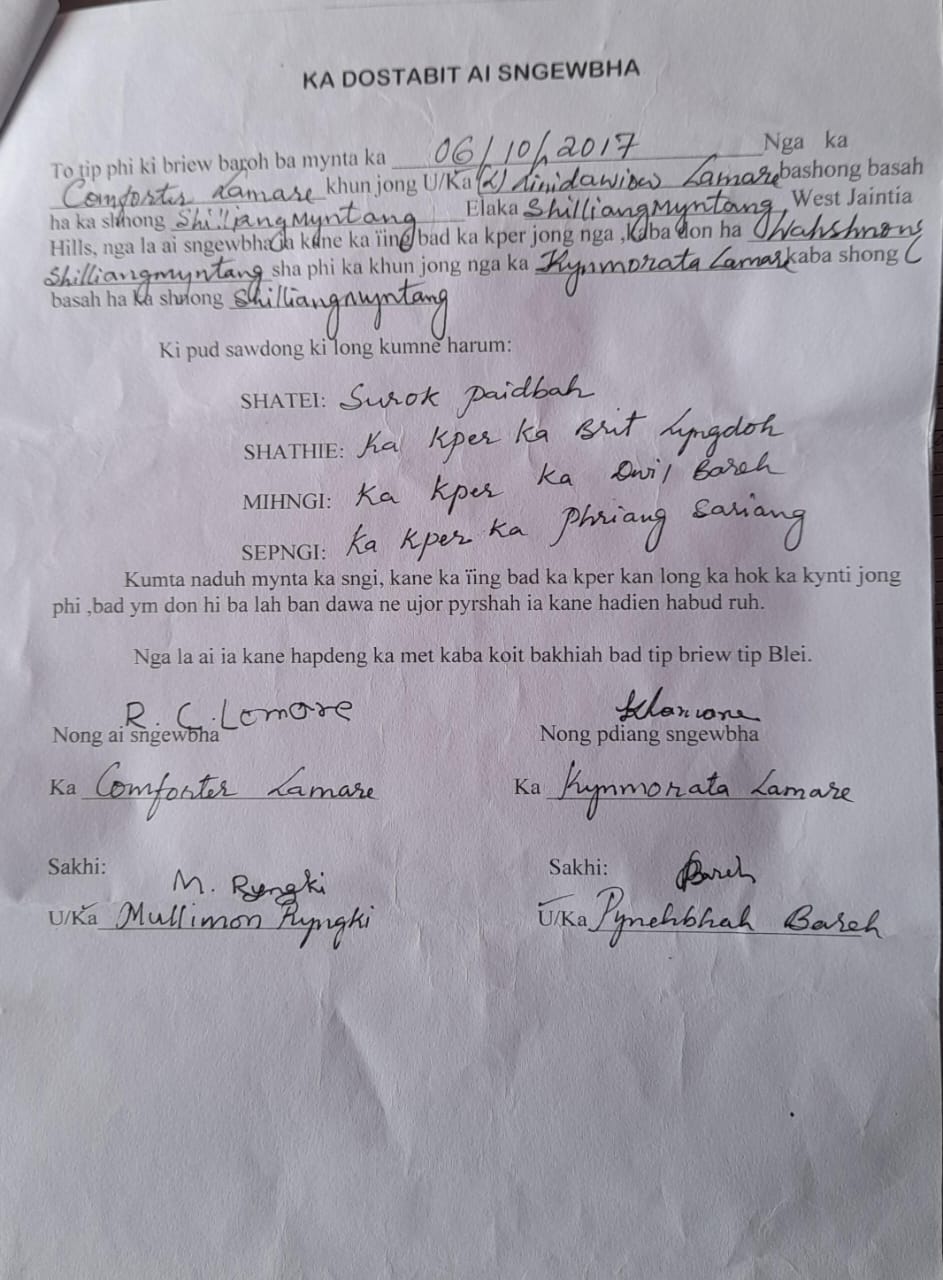 KA DOSTABIT AI SNGEWBHA
To tip phi ki briew baroh ba mynta ka 06/10/2017 Nga ka
Comforter Lamare khun jong U/Ka (L) Lamare bashong basah
ha ka shnong Shilliang Myntang Elaka Shilliang Myntang, West Jaintia
Hills, nga la ai sngewbha ia kane ka ïing bad ka kper jong nga ,kaba don ha Wahshnong
Shilliangmyntang sha phi ka khun jong nga ka Kynmorata Lamare kaba shong
basah ha ka shnong Shilliangmyntang
Ki pud sawdong ki long kumne harum:
SHATEI: Surok paidbah
SHATHIE: Ka kper ka Brit Lyngdoh
MIHNGI: Ka kper ka Owil Bareh
SEPNGI: Ka kper ka Phriang Sariang
Kumta naduh mynta ka sngi, kane ka ïing bad ka kper kan long ka hok ka kynti jong
phi ,bad ym don hi ba lah ban dawa ne ujor pyrshah ia kane hadien habud ruh.
Nga la ai ia kane hapdeng ka met kaba koit bakhiah bad tip briew tip Blei.
R. C. Lamare
Nong ai sngewbha Nong pdiang sngewbha
Ka Comforter Lamare Ka Kynmorata Lamare
Sakhi: Sakhi:
M. Ryngki Bareh
U/Ka Mullimon Ryngki U/Ka Pynehbhah Bareh